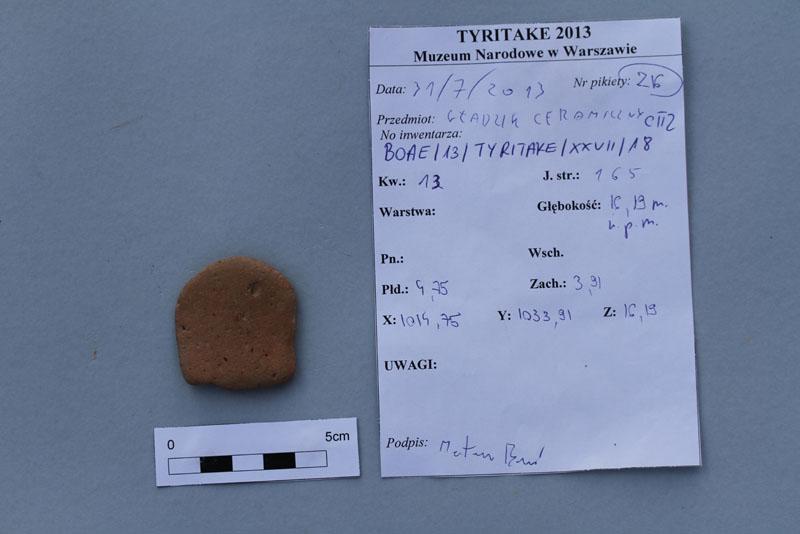 TYRITAKE 2013
Muzeum Narodowe w Warszawie
Data: 31/7/2013 Nr pikiety: 216
Przedmiot: GŁADZIK CERAMICZNY CII2
No inwentarza:
BOAE/13/TYRITAKE/XXVII/18
Kw.: 13 J. str.: 165
Warstwa: Głębokość: 16,19 m.
n.p.m.
Pn.: Wsch.
Płd.: 4,75 Zach.: 3,91
X: 1014,75 Y: 1033,91 Z: 16,19
UWAGI:
Podpis:
0 5cm